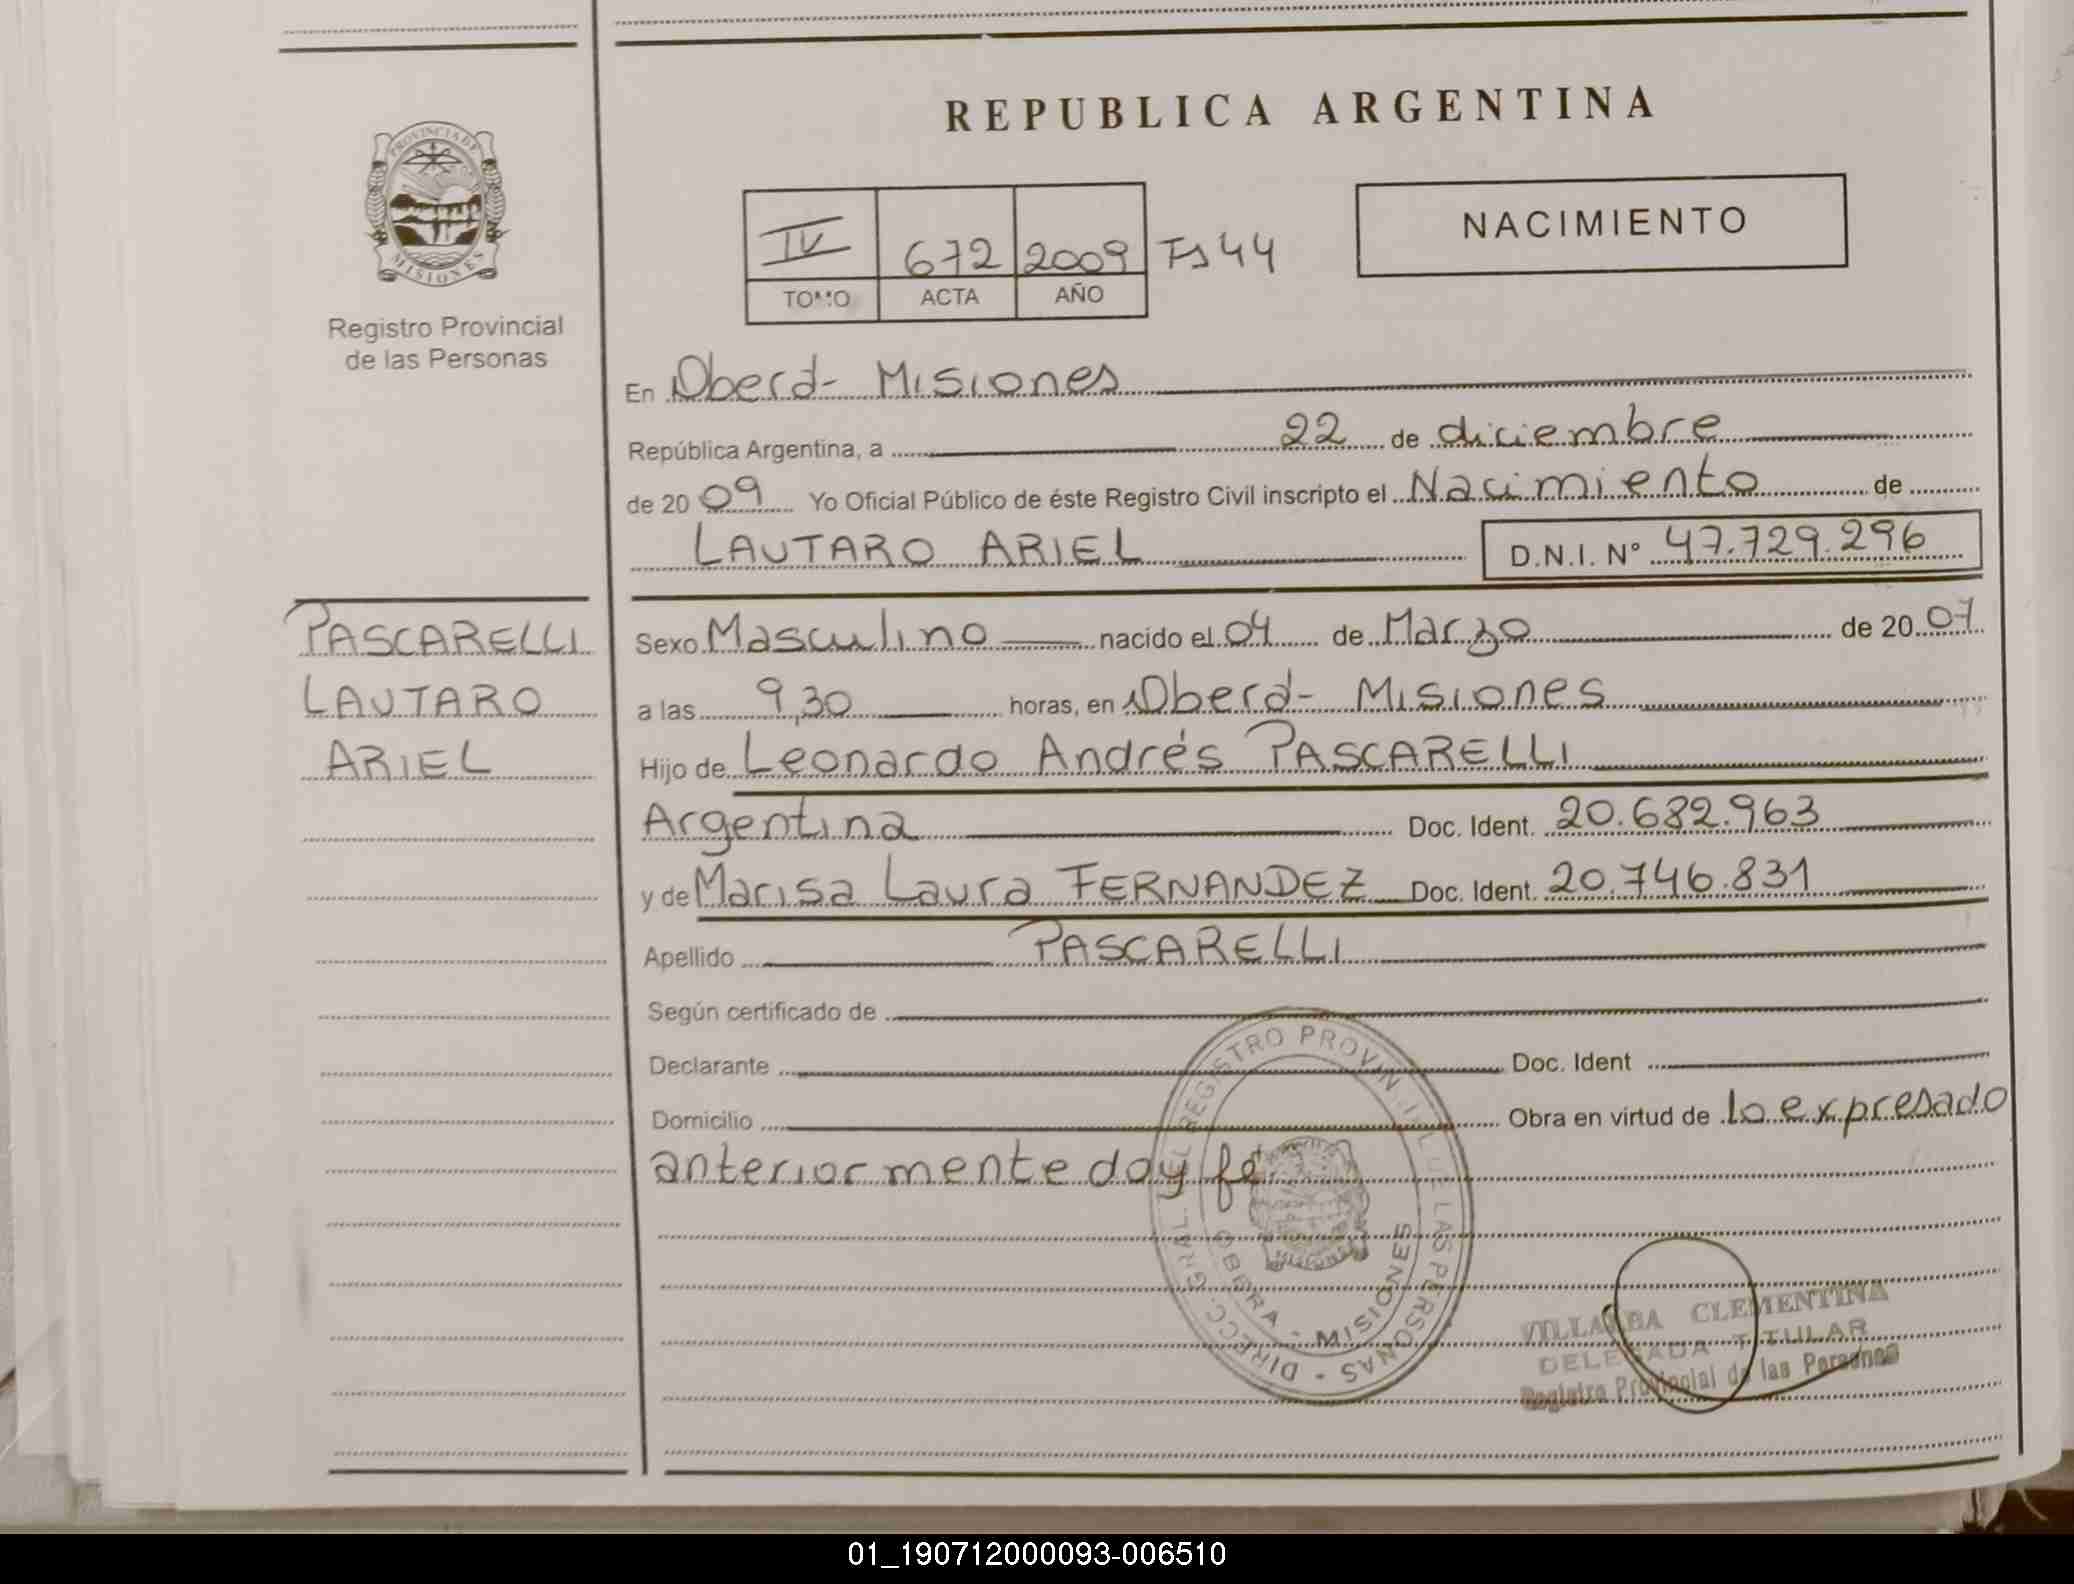 REPUBLICA ARGENTINA
PROVINCIA DE
MISIONES
Registro Provincial
de las Personas
IV 672 2009 Fs 44
TOMO ACTA AÑO
NACIMIENTO
En Oberá- Misiones
República Argentina, a 22 de diciembre
de 2009 Yo Oficial Público de éste Registro Civil inscripto el Nacimiento de
LAUTARO ARIEL D.N.I. N° 47.729.296
PASCARELLI
LAUTARO
ARIEL
Sexo Masculino nacido el 04 de Marzo de 2007
a las 9,30 horas, en Oberá- Misiones
Hijo de Leonardo Andrés PASCARELLI
Argentina Doc. Ident. 20.682.963
y de Marisa Laura FERNANDEZ Doc. Ident. 20.746.831
Apellido PASCARELLI
Según certificado de
Declarante Doc. Ident
Domicilio Obra en virtud de lo expresado
anteriormente doy fé
DIRECC. GRAL. DEL REGISTRO PROVINCIAL DE LAS PERSONAS
OBERA - MISIONES
VILLALBA CLEMENTINA
DELEGADA TITULAR
Registro Provincial de las Personas
01_190712000093-006510